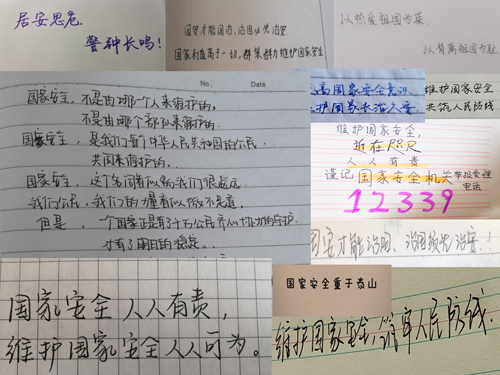 居安思危,
警钟长鸣!
国安才能国治,治国必先治安
国家利益高于一切,群策群力维护国家安全
以热爱祖国为荣
以背离祖国为耻
No.
Date
国家安全,不是由哪个人来维护的,
不是由哪个部门来维护的.
国家安全,是我们每个中华人民共和国的公民
共同来维护的.
国家安全,这个名词看似离我们很遥远
我们公民,我们的力量看似微不足道
但是,一个国家正是有了千万公民齐心协力的维护
才有了国的稳定.
提高国家安全意识
维护国家长治久安
维护国家安全
共筑人民防线
维护国家安全,
近在咫尺
人人有责
谨记国家安全机关举报受理电话
12339
国安才能治国、治国须先治安!
国家安全人人有责,
维护国家安全人人可为。
国家安全重于泰山
维护国家安全,筑牢人民防线.